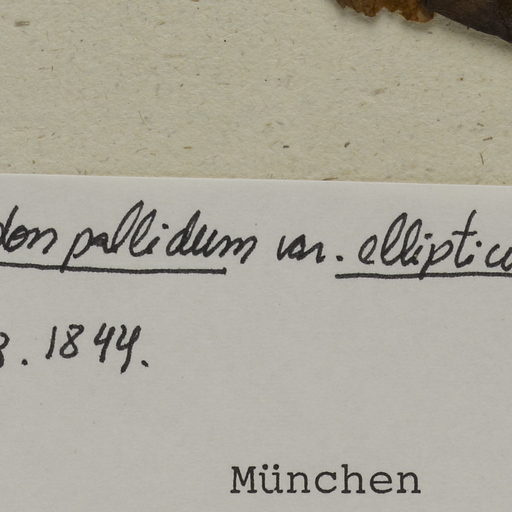 don pallidum var. elliptic
3. 1844.
München